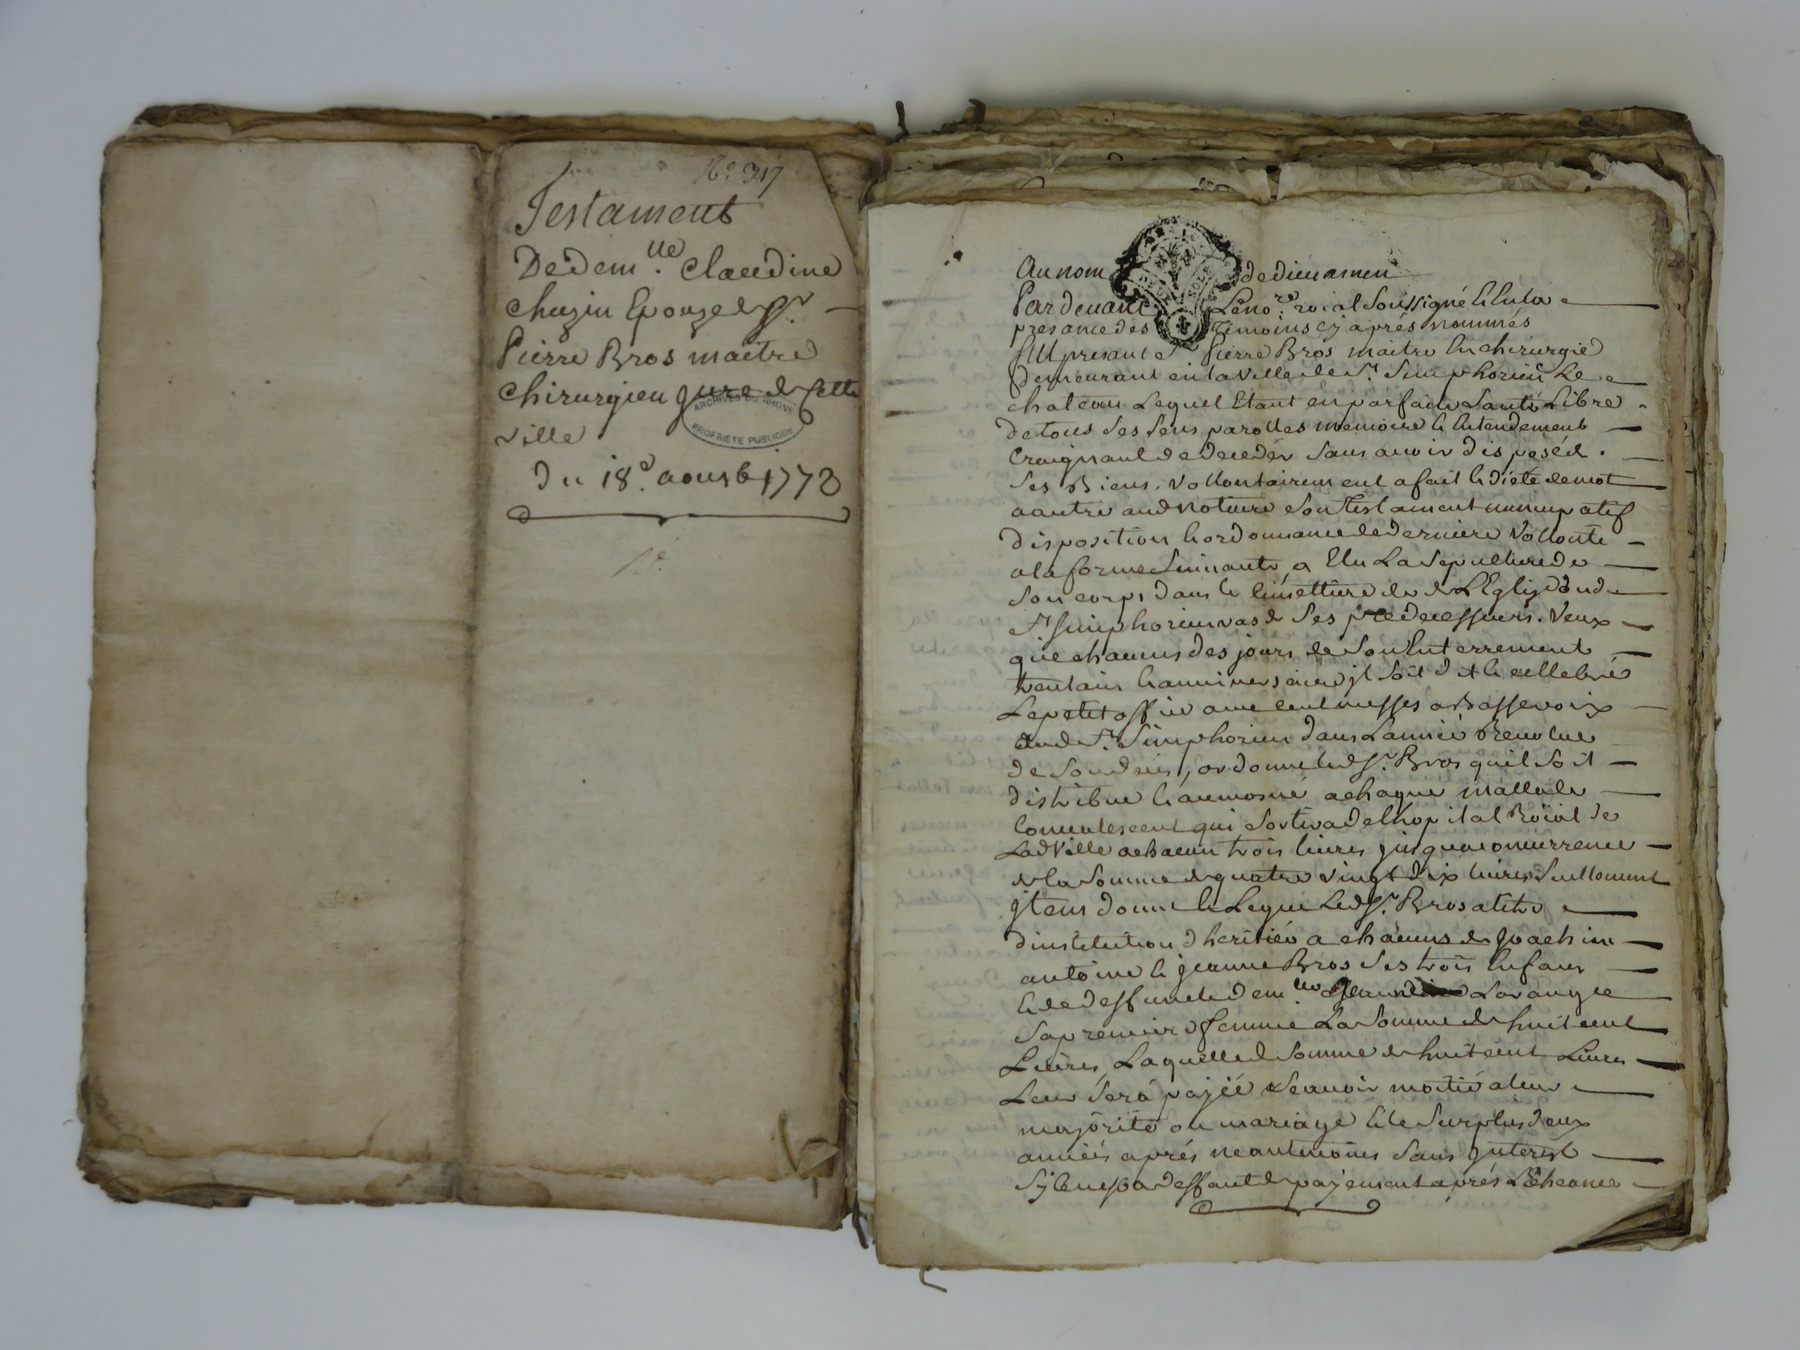 N.° 317
Testament
De dem.lle Claudine
Chazin Epouze de Sr.
Pierre Bros maitre
Chirurgien juré de Cette
ville
ARCHIVES DU RHONE
PROPRIÉTÉ PUBLIQUE
Du 18.e aoust 1773
Au nom de dieu amen
Pardevant Le no.re roial Soussigné & En la
presance des temoins cy après nommés
fut presant Sr. Pierre Bros maitre En chirurgie
demeurant en la ville de St. Simphorien Le
chateau Lequel Etant en parfaite Santé Libre
de tous Ses Sens parolles memoire & Entendement
Craignant de deceder Sans avoir disposé de
Ses Biens, vollontairement a fait & dicté de mot
a autre aud notaire Son testament nuncupatif
disposition & ordonnance de derniere vollonté
a la forme Suivante, a Elu La Sepulture de
Son corps dans le cimettiere de L'Eglize dud
St. Simphorien vas de Ses predecesseurs. Veux
que chacuns des jours de Son Enterrement
trentain & anniversaire jl Soit dit & cellebré
Le petit office avec cent messes a Basse voix
aud St. Simphorien dans L'année Revolue
de Son deces, ordonne led Sr. Bros quil Soit
distribué & aumosné a chaque mallade
Convalescent qui Sortira de l'hopital Roïal de
Lad Ville a chacun trois livres jusqua concurrence
de la Somme de quatre vingt dix livres Seullement
jtem donne & Legue Led Sr. Bros a titre
d'institution d'heritier a chacuns de Joachim
antoine & jeanne Bros Ses trois Enfans
& de deffunte dem.lle Lavauzee
Sa premiere femme La Somme de huit cent
Livres, Laquelle de Somme de huit cent Livres
Leur Sera paÿée Scavoir moitié a leur
majorité ou mariage & le Surplus deux
années après neantmoins Sans jnterest
Sy ce nest a deffaut de paÿement après L'Echeance